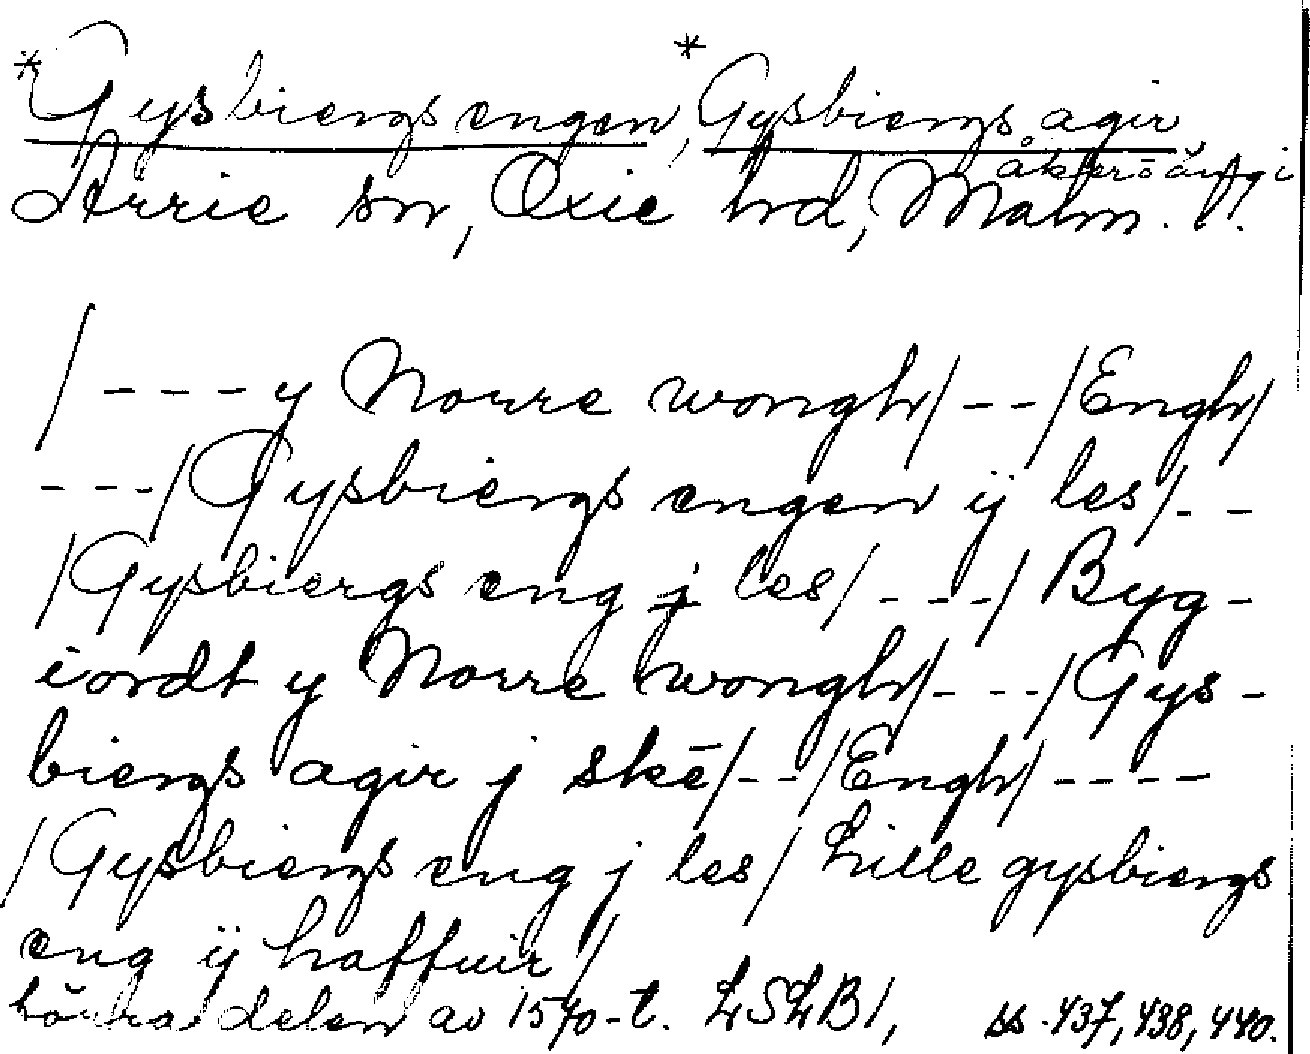 *Gysbiergs engen, *Gysbiergs agir
åker o äng i
Arrie sn, Oxie hd, Malm. l.
/ - - - y Norre wongh/ - - /Engh/
- - - /Gysbiergs engen ij les/ - -
/Gysbiergs eng j les/ - - - / Byg-
iordt y Norre wongh/ - - - /Gys-
biergs agir j skē/ - - /Engh/ - - - -
/Gysbiergs eng j les/ Lille gysbiergs
eng ij haffuir/
börja delen av 1570-t. LSLB1, ss. 437, 438, 440.